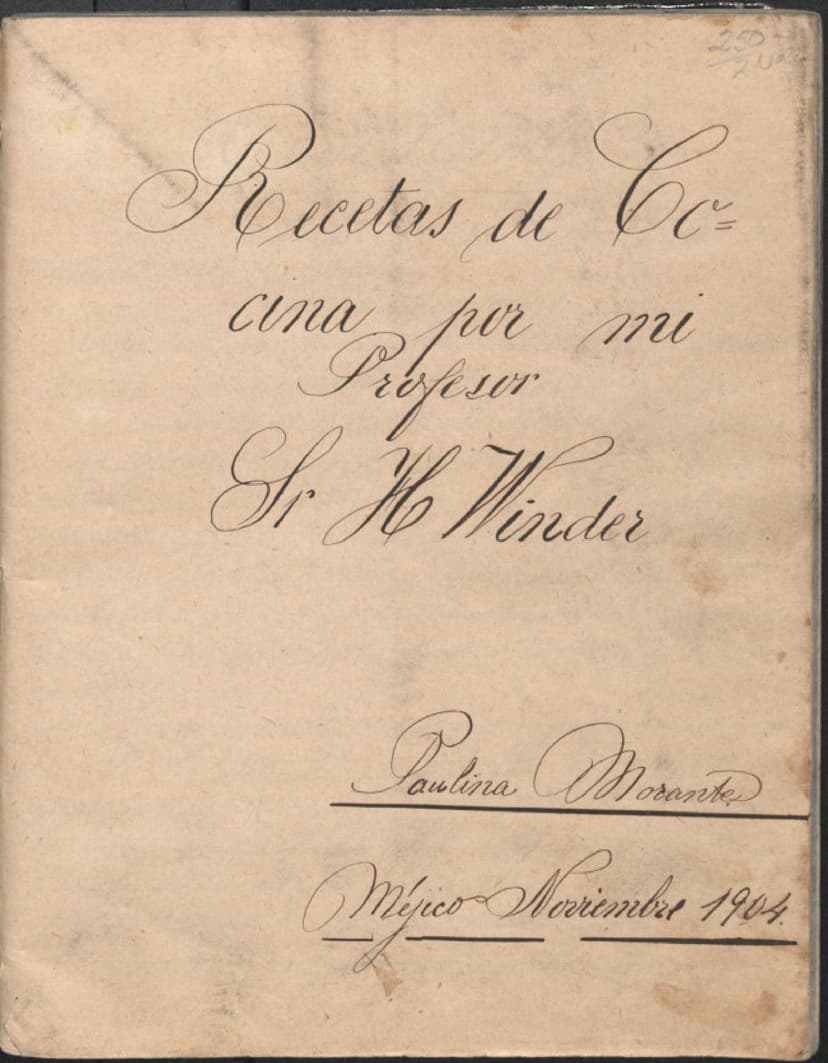 250-
Recetas de Co=
cina por mi
Profesor
Sr H Winder
Paulina Morante
Méjico Noviembre 1904.